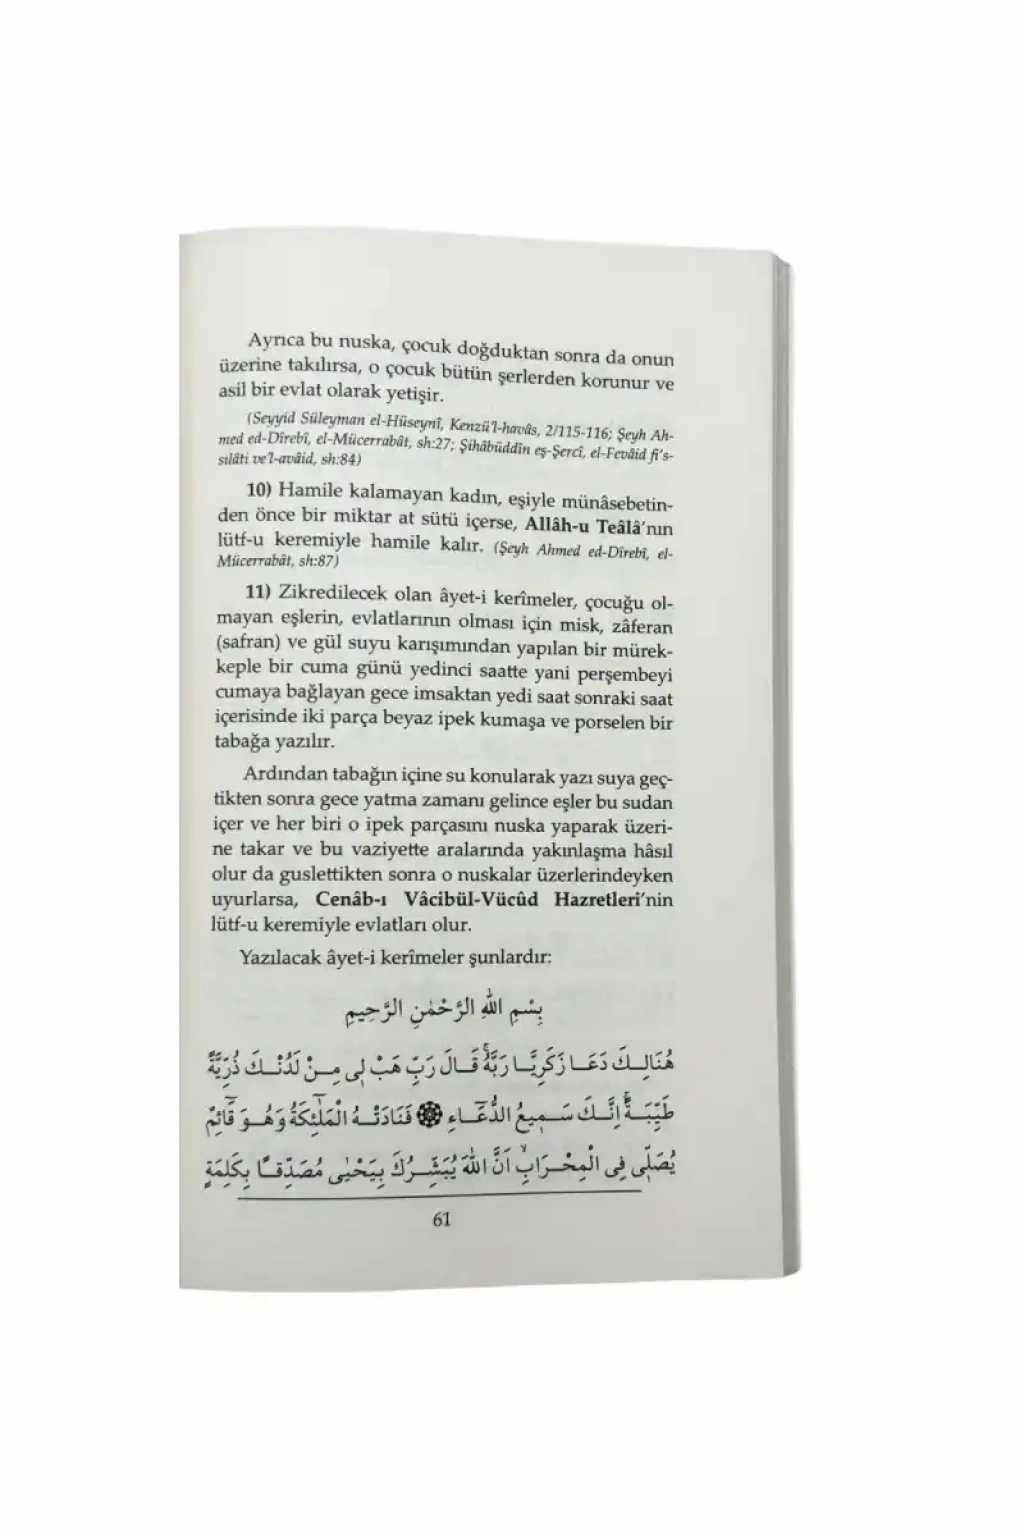 Ayrıca bu nuska, çocuk doğduktan sonra da onun
üzerine takılırsa, o çocuk bütün şerlerden korunur ve
asil bir evlat olarak yetişir.
(Seyyid Süleyman el-Hüseynî, Kenzü'l-havâs, 2/115-116; Şeyh Ah-
med ed-Dîrebî, el-Mücerrabât, sh:27; Şihâbüddîn eş-Şercî, el-Fevâid fi's-
sılâti ve'l-avâid, sh:84)
10) Hamile kalamayan kadın, eşiyle münâsebetin-
den önce bir miktar at sütü içerse, Allâh-u Teâlâ'nın
lütf-u keremiyle hamile kalır. (Şeyh Ahmed ed-Dîrebî, el-
Mücerrabât, sh:87)
11) Zikredilecek olan âyet-i kerîmeler, çocuğu ol-
mayan eşlerin, evlatlarının olması için misk, zâferan
(safran) ve gül suyu karışımından yapılan bir mürek-
keple bir cuma günü yedinci saatte yani perşembeyi
cumaya bağlayan gece imsaktan yedi saat sonraki saat
içerisinde iki parça beyaz ipek kumaşa ve porselen bir
tabağa yazılır.
Ardından tabağın içine su konularak yazı suya geç-
tikten sonra gece yatma zamanı gelince eşler bu sudan
içer ve her biri o ipek parçasını nuska yaparak üzeri-
ne takar ve bu vaziyette aralarında yakınlaşma hâsıl
olur da guslettikten sonra o nuskalar üzerlerindeyken
uyurlarsa, Cenâb-ı Vâcibül-Vücûd Hazretleri'nin
lütf-u keremiyle evlatları olur.
Yazılacak âyet-i kerîmeler şunlardır:
بِسْمِ اللهِ الرَّحْمٰنِ الرَّحِيمِ
هُنَالِكَ دَعَا زَكَرِيَّا رَبَّهُۚ قَالَ رَبِّ هَبْ لِى مِنْ لَدُنْكَ ذُرِّيَّةً
طَيِّبَةًۚ اِنَّكَ سَمِيعُ الدُّعَٓاءِ ۞ فَنَادَتْهُ الْمَلٰٓئِكَةُ وَهُوَ قَٓائِمٌ
يُصَلِّى فِى الْمِحْرَابِۙ اَنَّ اللهَ يُبَشِّرُكَ بِيَحْيٰى مُصَدِّقًا بِكَلِمَةٍ
61